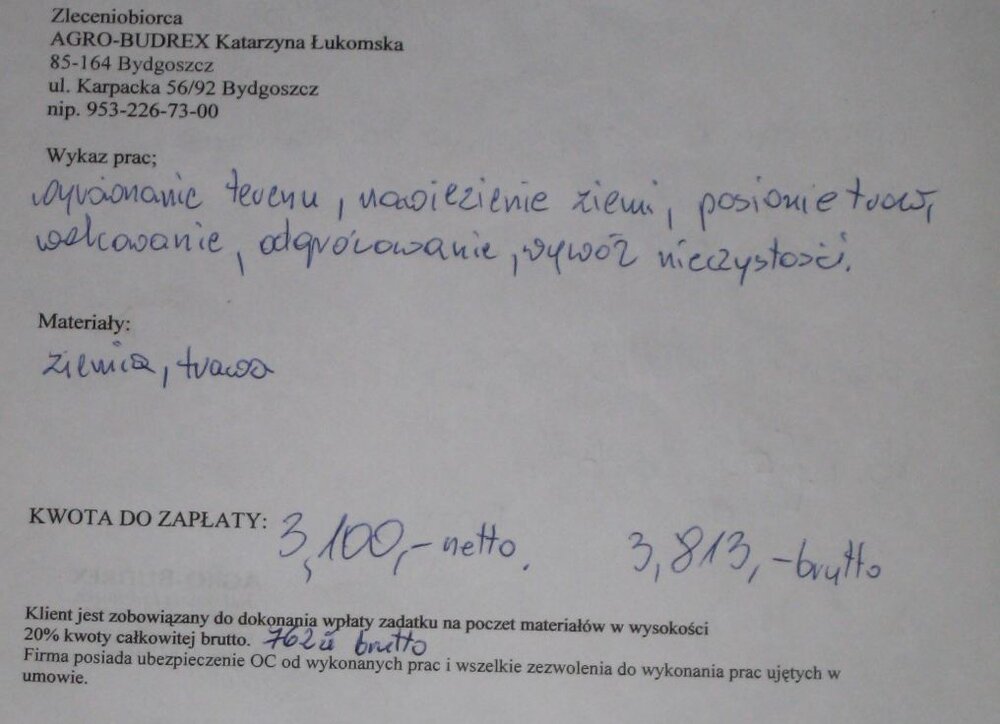 Zleceniobiorca
AGRO-BUDREX Katarzyna Łukomska
85-164 Bydgoszcz
ul. Karpacka 56/92 Bydgoszcz
nip. 953-226-73-00
Wykaz prac;
wyrównanie terenu, nawiezienie ziemi, posianie traw,
wałkowanie, odgrócowanie, wywóz nieczystości.
Materiały:
ziemia, trawa
KWOTA DO ZAPŁATY: 3,100,- netto. 3,813,- brutto
Klient jest zobowiązany do dokonania wpłaty zadatku na poczet materiałów w wysokości
20% kwoty całkowitej brutto. 762 zł brutto
Firma posiada ubezpieczenie OC od wykonanych prac i wszelkie zezwolenia do wykonania prac ujętych w
umowie.